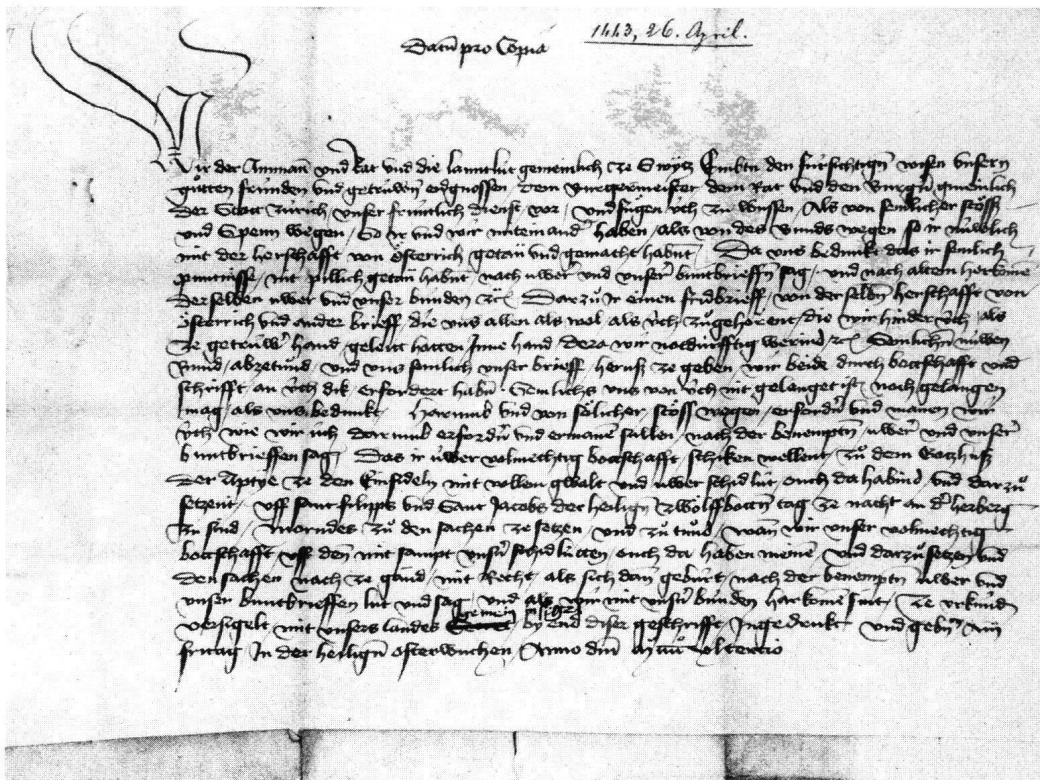 1443, 26. April.
Datum pro Copia
Wir der Amman vnd Rat vnd die lanntlüt gemeinlich ze Swytz Embieten den fürsichtigen wisen vnsern
gutten fründen vnd getrüwen eidgnossen dem Burgermeister dem Rat vnd den Burgern gmeinlich
der Statt Zürich, vnser früntlich dienst vor, vnd fügen üch zu wüssen, Als von semlicher stöss
vnd Spenn wegen, So ir vnd wir mitenander haben, als von des Bunds wegen so ir nüwlich
mit der herschafft von Österrich getan vnd gemacht habent, Da vns bedunkt das ir semlich
püntnisse, nit pillich getan habent, nach üwer vnd vnser buntbrieffen sag, vnd nach altem herkomen
derselben üwer vnd vnser bünden etc. Darzu ir einen fridbrieff, von der selben herschafft von
Österrich vnd ander brieff, die vns allen als wol, als üch zugehörent, die wir hinder üch, als
ze getrüwer hand, geleitt hatten Inne hand, dera wir nodturfftig werind, etc. Semlichen nüwen
Bund, abzetund, vnd vns semlich vnser brieff, heruss ze geben, wir beide durch bottschafft vnd
schrifft, an üch dik, erfordert haben, Semlichs vns von üch nit gelanget ist, noch gelangen
mag, als vns bedunkt, Harumb vnd von sölicher stöss wegen, erfordern vnd manen wir
üch, wie wir üch darumb erfordern vnd ermanen sullen, nach der benempten, üwer vnd vnser
buntbrieffen sag, Das ir üwer volmechtig bottschafft, schiken wellent, zu dem Gotzhuß
der Aptye ze den Einsideln mit vollem gewalt vnd üwer schidlüt, ouch da habind, vnd darzu
setzent, vff sant filipps vnd Sant Jacobs der heiligen zwölffbotten tag ze nacht an der herberg
zu sind, Morndes zu den sachen ze setzen, vnd zu tund, wan wir vnser volmechtig
bottschafft, vff den mit sampt vnsern schidlütten, ouch da haben meinen, vnd darzu setzen vnd
den sachen nach ze gand, mit Recht, als sich dann gebürt, nach der benempten üwer vnd
vnser buntbrieffen lut vnd sag, vnd als wir mit vnsern bünden harkomen sint, Ze vrkund
versigelt, mit vnsers landes gemein Insigel by end diser geschrifft Ingedrukt, vnd geben am
fritag In der heiligen osterwuchen, Anno domini